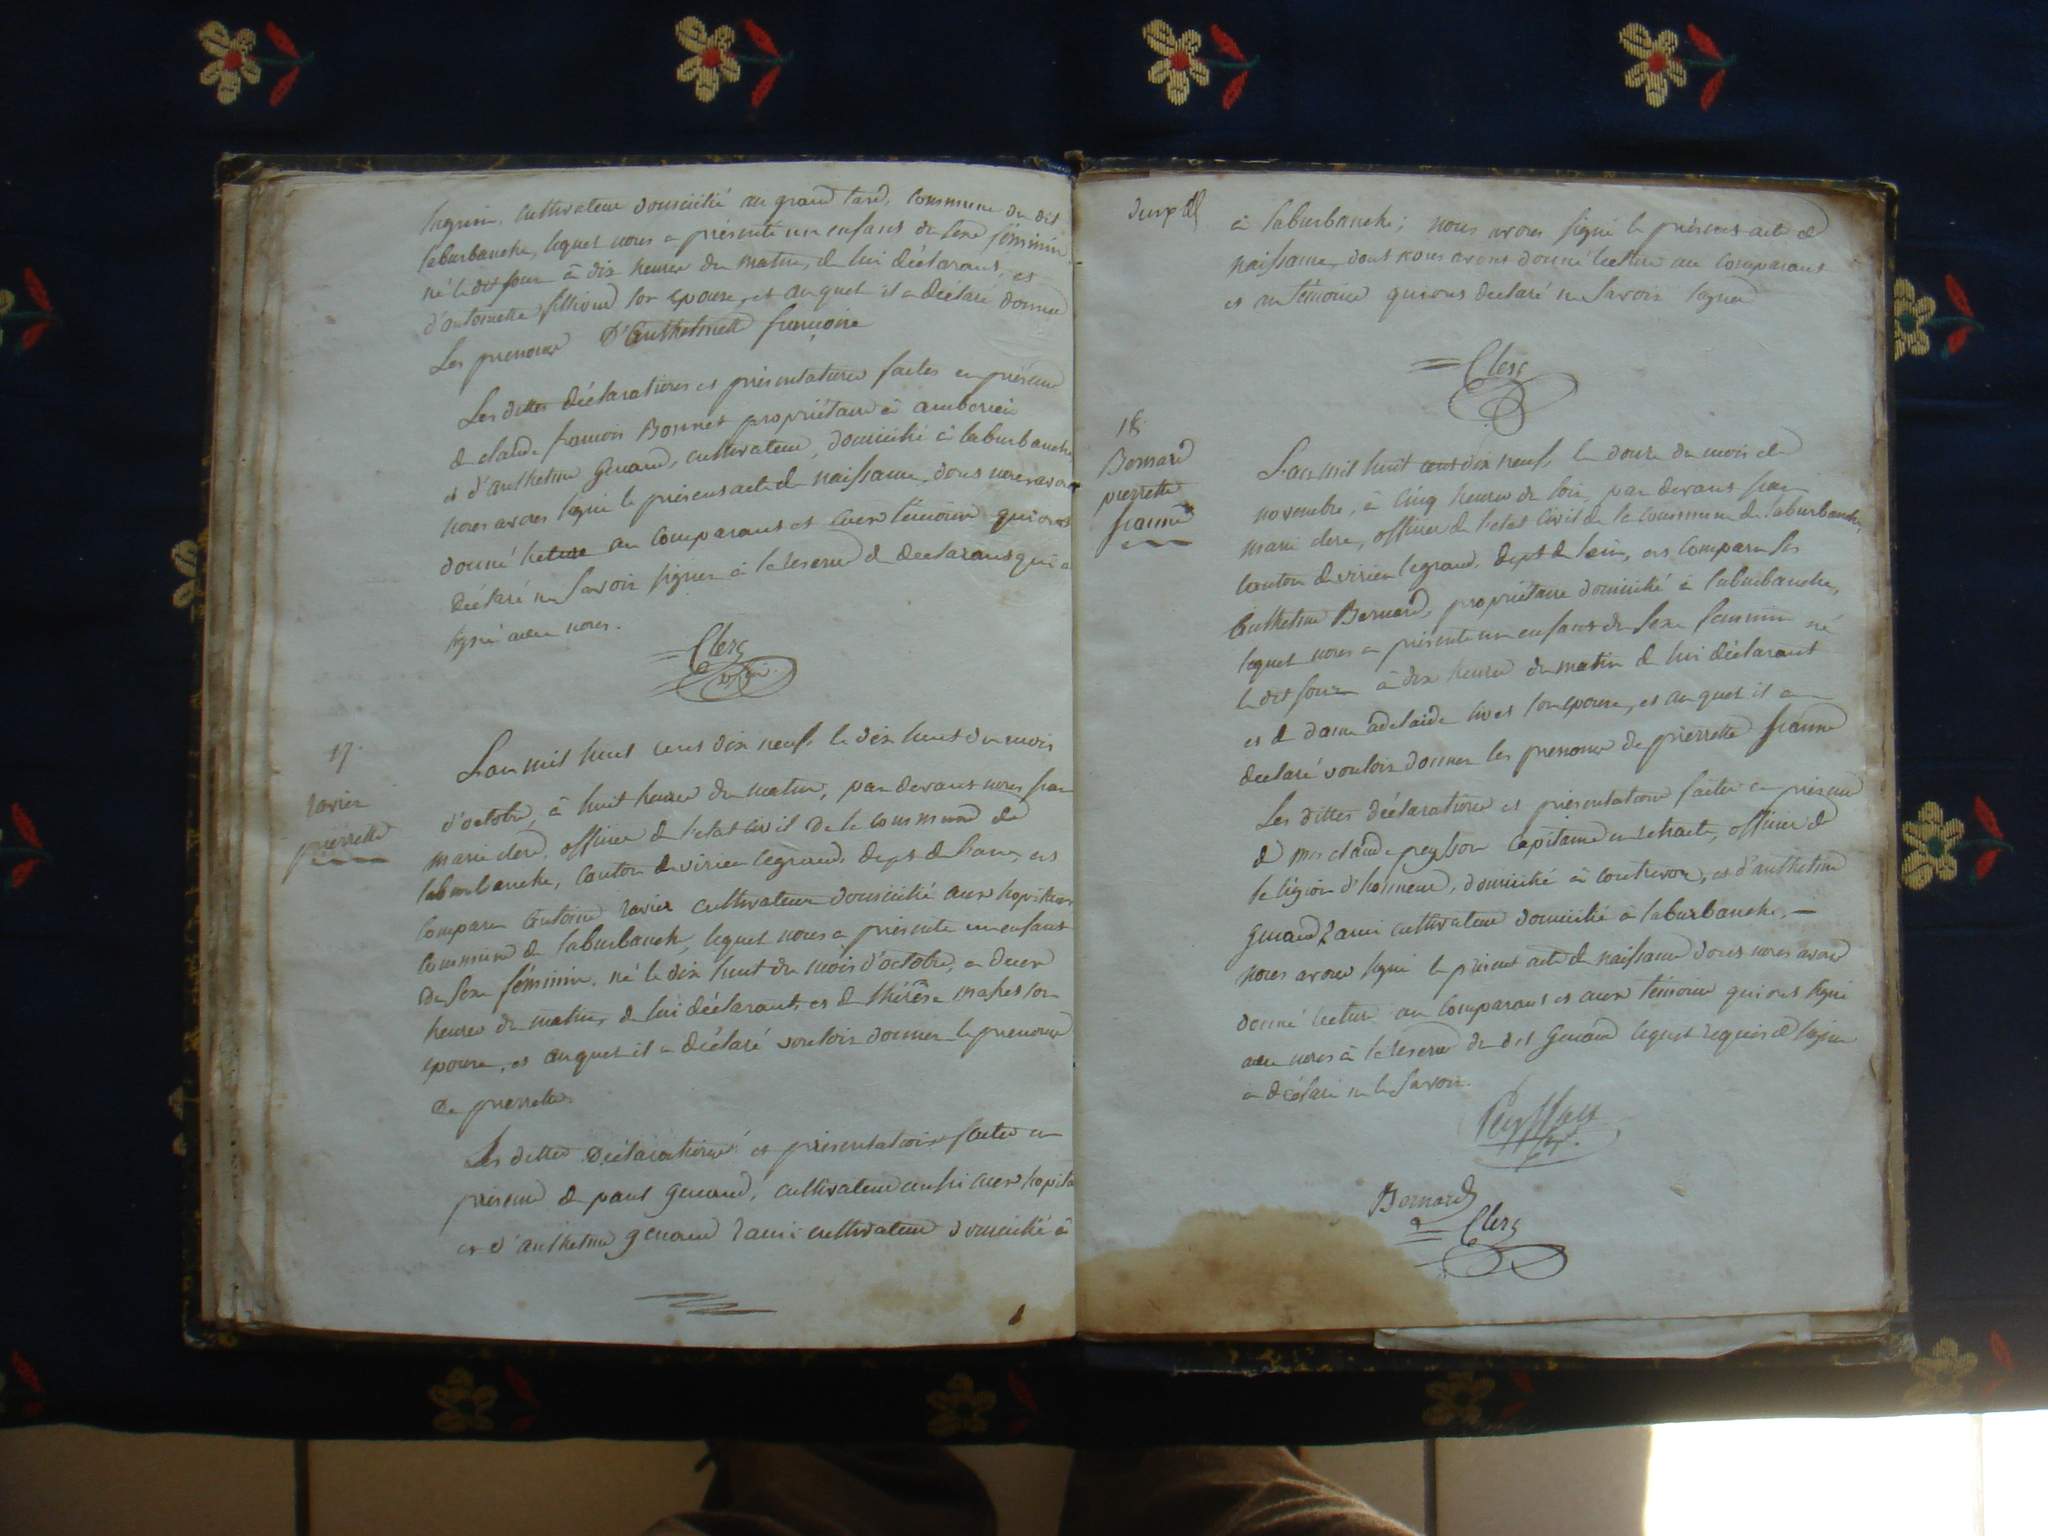 cultivateur domicilié au grand tard, commune du dit
laburbanche, lequel nous a présenté un enfant du sexe féminin,
né le dit jour à dix heures du matin, de lui déclarant, et
d'antoinette son epouse, et auquel il a déclaré donner
Les prenoms D'Anthelmette françoise
Les dittes déclarations et présentations faites en présence
de claude françois Bonnet propriétaire à amberieu
et d'anthelme Genand, cultivateur, domicilié à laburbanche
nous avons signé le présent acte de naissance, dont nous avons
donné lecture au comparant et aux témoins qui ont
déclaré ne savoir signer à la reserve du declarant qui a
signé avec nous.
Clerc
17.
ravier
pierrette
L'an mil huit cent dix neuf, le dix huit du mois
d'octobre, à huit heures du matin, par devant nous fran
marie clerc, officier de l'etat civil de la commune de
laburbanche, canton de virieu legrand, dept de l'ain, est
comparu Antoine ravier cultivateur domicilié aux hopitaux
commune de laburbanche, lequel nous a présenté un enfant
du sexe féminin, né le dix huit du mois d'octobre, a deux
heures du matin, de lui déclarant, et de thérèse son
epouse, et auquel il a déclaré vouloir donner le prenom
De pierrette.
Les dittes Déclarations et présentations faites en
présence de paul Genand, cultivateur aussi aux hopita
et d'anthelme genand ravier cultivateur domicilié à
à laburbanche; nous avons signé le présent acte de
naissance, dont nous avons donné lecture au comparant
et au témoins qui ont declaré ne savoir signer
Clerc
18.
Bernard
pierrette
jeanne
L'an mil huit cent dix neuf, le douze du mois de
novembre, à cinq heures du soir, par devant fran
marie clerc, officier de l'etat civil de la commune de laburbanche,
canton de virieu legrand, dept de l'ain, est comparu
Anthelme Bernard, propriétaire domicilié à laburbanche,
lequel nous a présenté un enfant du sexe feminin né
le dit jour à dix heures du matin de lui déclarant
et de dame adelaide son epouse, et auquel il a
déclaré vouloir donner les prenoms de pierrette jeanne
Les dittes déclarations et présentations faites en présence
de mr claude peysson capitaine en retraite, officier de
la légion d'honneur, domicilié à contrevoz, et d'anthelme
genand ravier cultivateur domicilié à laburbanche. —
nous avons signé le présent acte de naissance dont nous avons
donné lecture au comparant et aux témoins qui ont signé
avec nous à la reserve du dit Genand lequel requis de signer
a déclaré ne le savoir.
Peysson
Bernard
Clerc